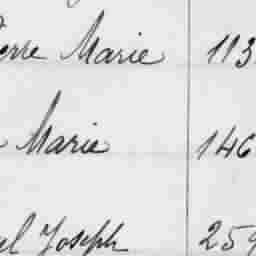 Pierre Marie 113
Marie 146
Joseph 259